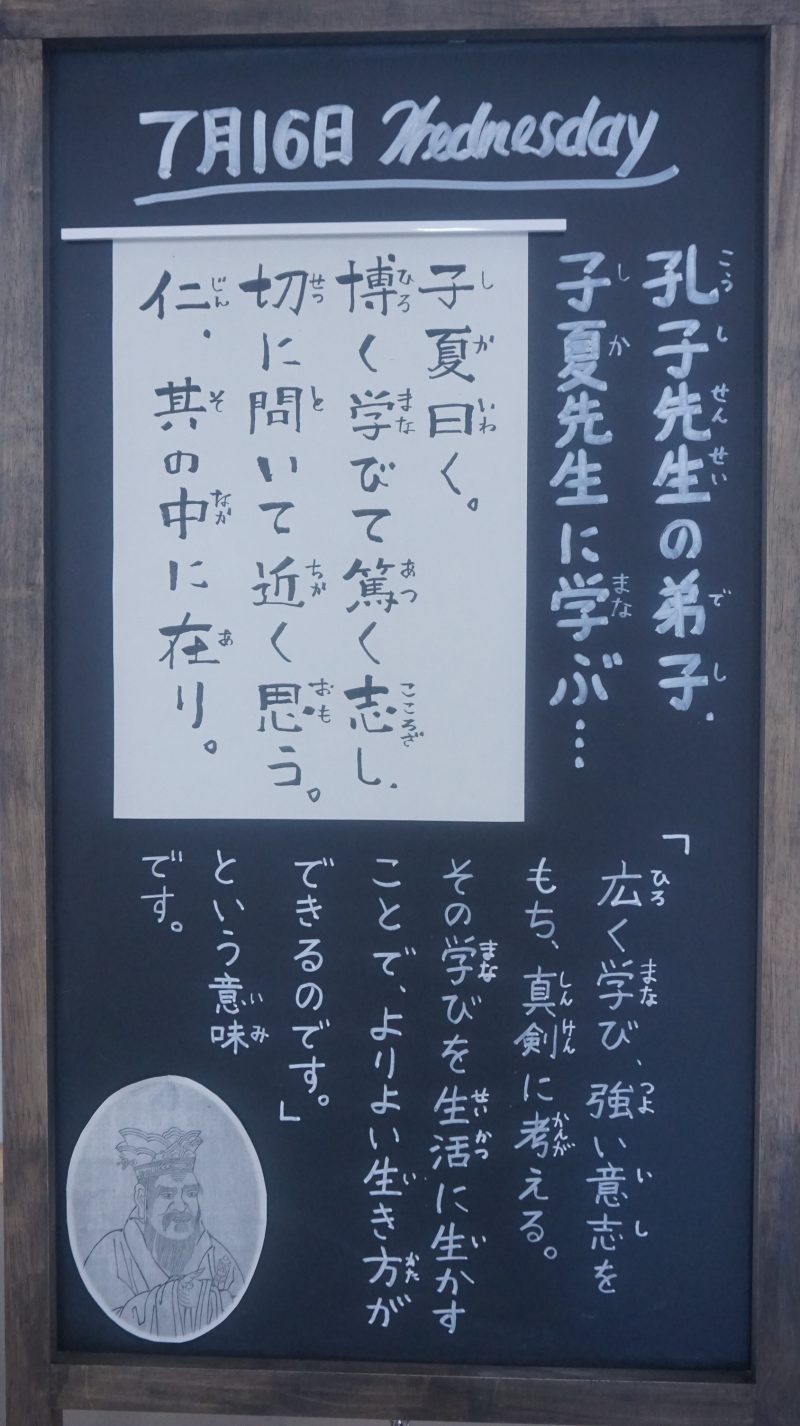 7月16日 Wednesday
孔子先生の弟子、
子夏先生に学ぶ…
子夏曰く。
博く学びて篤く志し、
切に問いて近く思う。
仁、其の中に在り。
「広く学び、強い意志を
もち、真剣に考える。
その学びを生活に生かす
ことで、よりよい生き方が
できるのです。」
という意味
です。